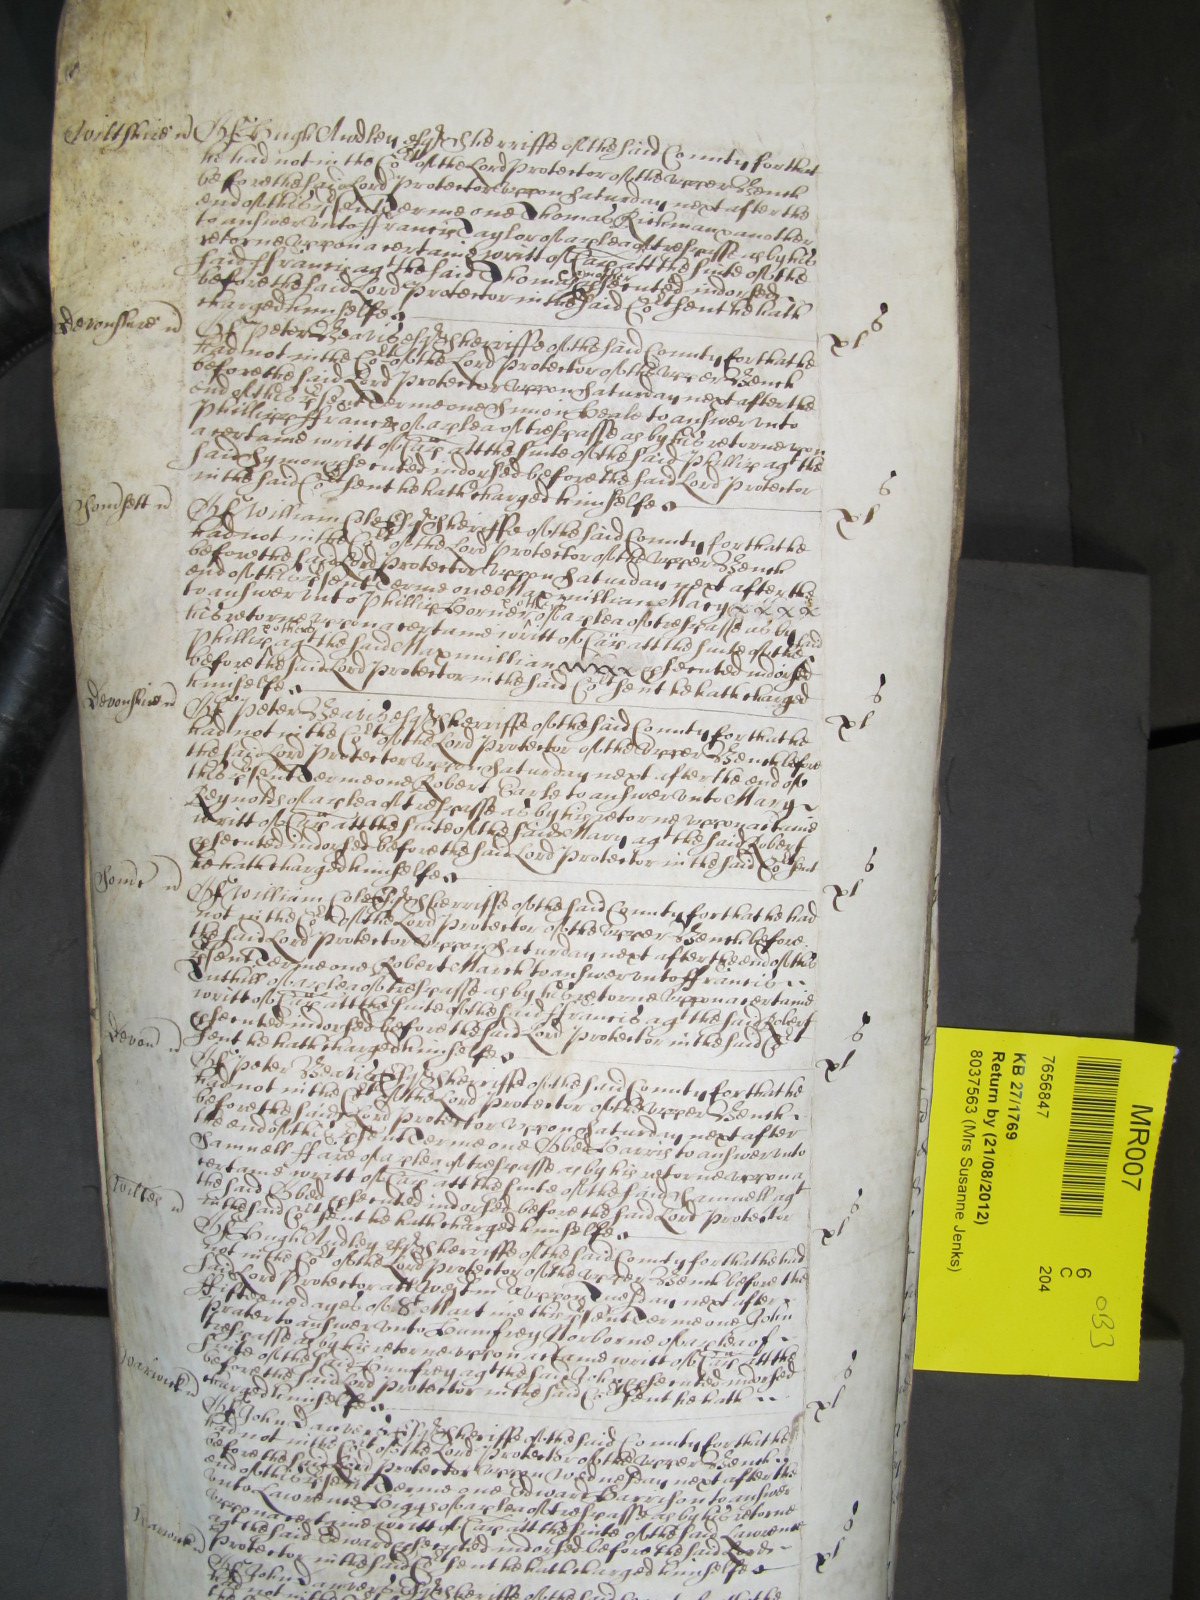 Wiltshire Of Hugh Awdley esqr Sherriffe of the said County for that
he had not in the Cot of the Lord Protector of the upper Bench
before the said Lord Protector uppon Saturday next after the
end of this psent Terme one Thomas Rickman & another
to answer unto Francis Taylor of a plea of trespasse as by his
retorne uppon a certaine writt of Cap att the suite of the
said Francis agt the said Thomas & another psented indorsed
before the said Lord Protector in the said Cot sent he hath
charged himselfe
xl s
Devonshire Of Peter Beavis esqr Sherriffe of the said County for that he
had not in the Cot of the Lord Protector of the upper Bench
before the said Lord Protector uppon Saturday next after the
end of this psent Terme one Simon Beale to answer unto
Phillipp Francis of a plea of trespasse as by his retorne uppon
a certaine writt of Cap att the suite of the said Phillip agt the
said Symon psented indorsed before the said Lord Protector
in the said Cot sent he hath charged himselfe
xl s
Somsett Of William Cole Esqr Sherriffe of the said County for that he
had not in the Cot of the Lord Protector of the upper Bench
before the said Lord Protector uppon Saturday next after the
end of this psent Terme one Maxmillian Mary
to answer unto Phillip Horner & others of a plea of trespasse as by
his retorne uppon a certaine writt of Cap att the suite of the said
Phillip & others agt the said Maxmillian psented indorsed
before the said Lord Protector in the said Cot sent he hath charged
himselfe
xl s
Devonshire Of Peter Beavis esqr Sherriffe of the said County for that he
had not in the Cot of the Lord Protector of the upper Bench before
the said Lord Protector uppon Saturday next after the end of
this psent Terme one Robert Earle to answer unto Mary
Reynolds of a plea of trespasse as by his retorne uppon a ctaine
writt of Cap att the suite of the said Mary agt the said Robert
psented indorsed before the said Lord Protector in the said Cot sent
he hath charged himselfe
xl s
Somst Of William Cole Esqr Sherriffe of the said County for that he had
not in the Cot of the Lord Protector of the upper Bench before
the said Lord Protector uppon Saturday next after the end of this
psent Terme one Robert March to answer unto Francis
Tuthill of a plea of trespasse as by his retorne uppon a certaine
writt of Cap att the suite of the said Francis agt the said Robert
psented indorsed before the said Lord Protector in the said Cot
sent he hath charged himselfe
xl s
Devon Of Peter Beavis Esqr Sherriffe of the said County for that he
had not in the Cot of the Lord Protector of the upper Bench
before the said Lord Protector uppon Saturday next after
the end of this psent Terme one Obed Harris to answer unto
Samuell Fare of a plea of trespasse as by his retorne uppon a
certaine writt of Cap att the suite of the said Samuell agt
the said Obed psented indorsed before the said Lord Protector
in the said Cot sent he hath charged himselfe
xl s
Wiltes Of Hugh Audley Esqr Sherriffe of the said County for that he had
not in the Cot of the Lord Protector of the upper Bench before the
said Lord Protector att Westm uppon Tuesday next after
Fifteene dayes of St Martin this psent Terme one John
Prater to answer unto Humfrey Norborne of a plea of
trespasse as by his retorne uppon a ctaine writt of Cap att the
suite of the said Humfrey agt the said John psented indorsed
before the said Lord Protector in the said Cot sent he hath
charged himselfe
xl s
Warwick Of John Danvers Esqr Sherriffe of the said County for that he
had not in the Cot of the Lord Protector of the upper Bench
before the said Lord Protector uppon Wednesday next after the
end of this psent Terme one Edward Harrison to answer
unto Lawrence Higgs of a plea of trespasse as by his retorne
uppon a certaine writt of Cap att the suite of the said Lawrence
agt the said Edward psented indorsed before the said Lord
Protector in the said Cot sent he hath charged himselfe
xl s
Warwick Of John Danvers Esqr Sherriffe of the said County for that he
had not in the
MR007
7656847
KB 27/1769
Return by (21/08/2012)
80375563 (Mrs Susanne Jenks)
6
C
204
033